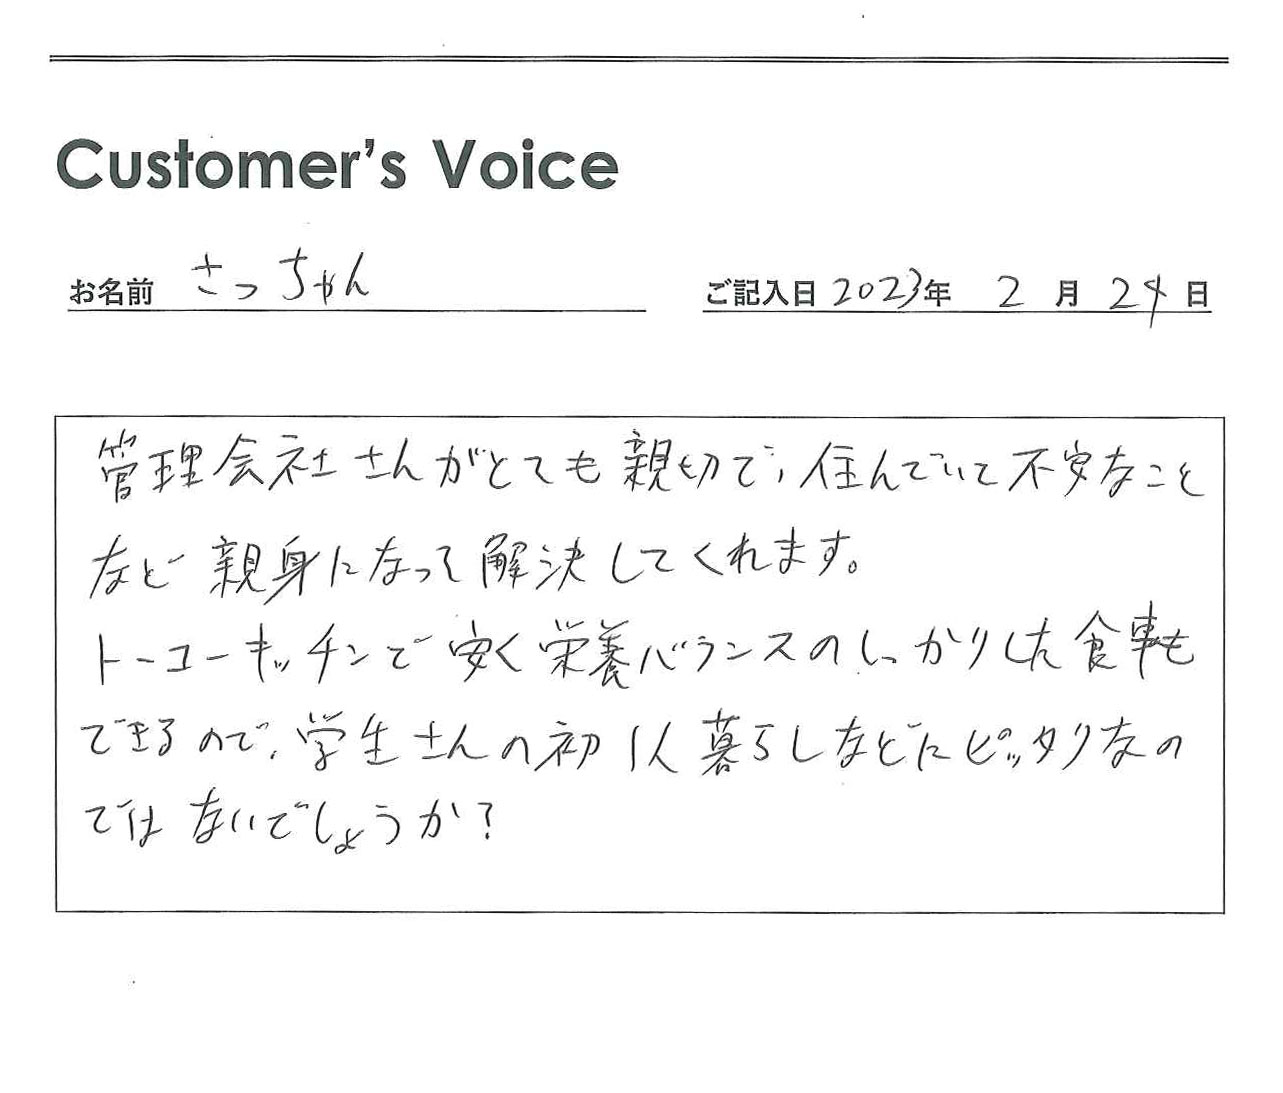 Customer's Voice
お名前 さっちゃん
ご記入日 2023年 2月 24日
管理会社さんがとても親切で、住んでいて不安なこと
など親身になって解決してくれます。
トーコーキッチンで安く栄養バランスのしっかりした食事も
できるので、学生さんの初1人暮らしなどにピッタリなの
ではないでしょうか?